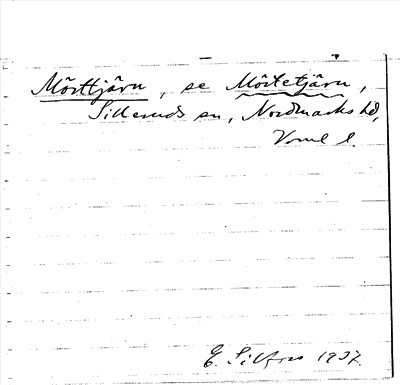 Mörttjärn, se Mörtetjärn,
Silleruds sn, Nordmarks hd,
Vrml l.
E. Silfors 1937.